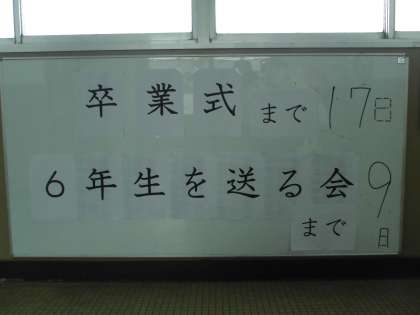 卒業式まで17日
6年生を送る会9日
まで